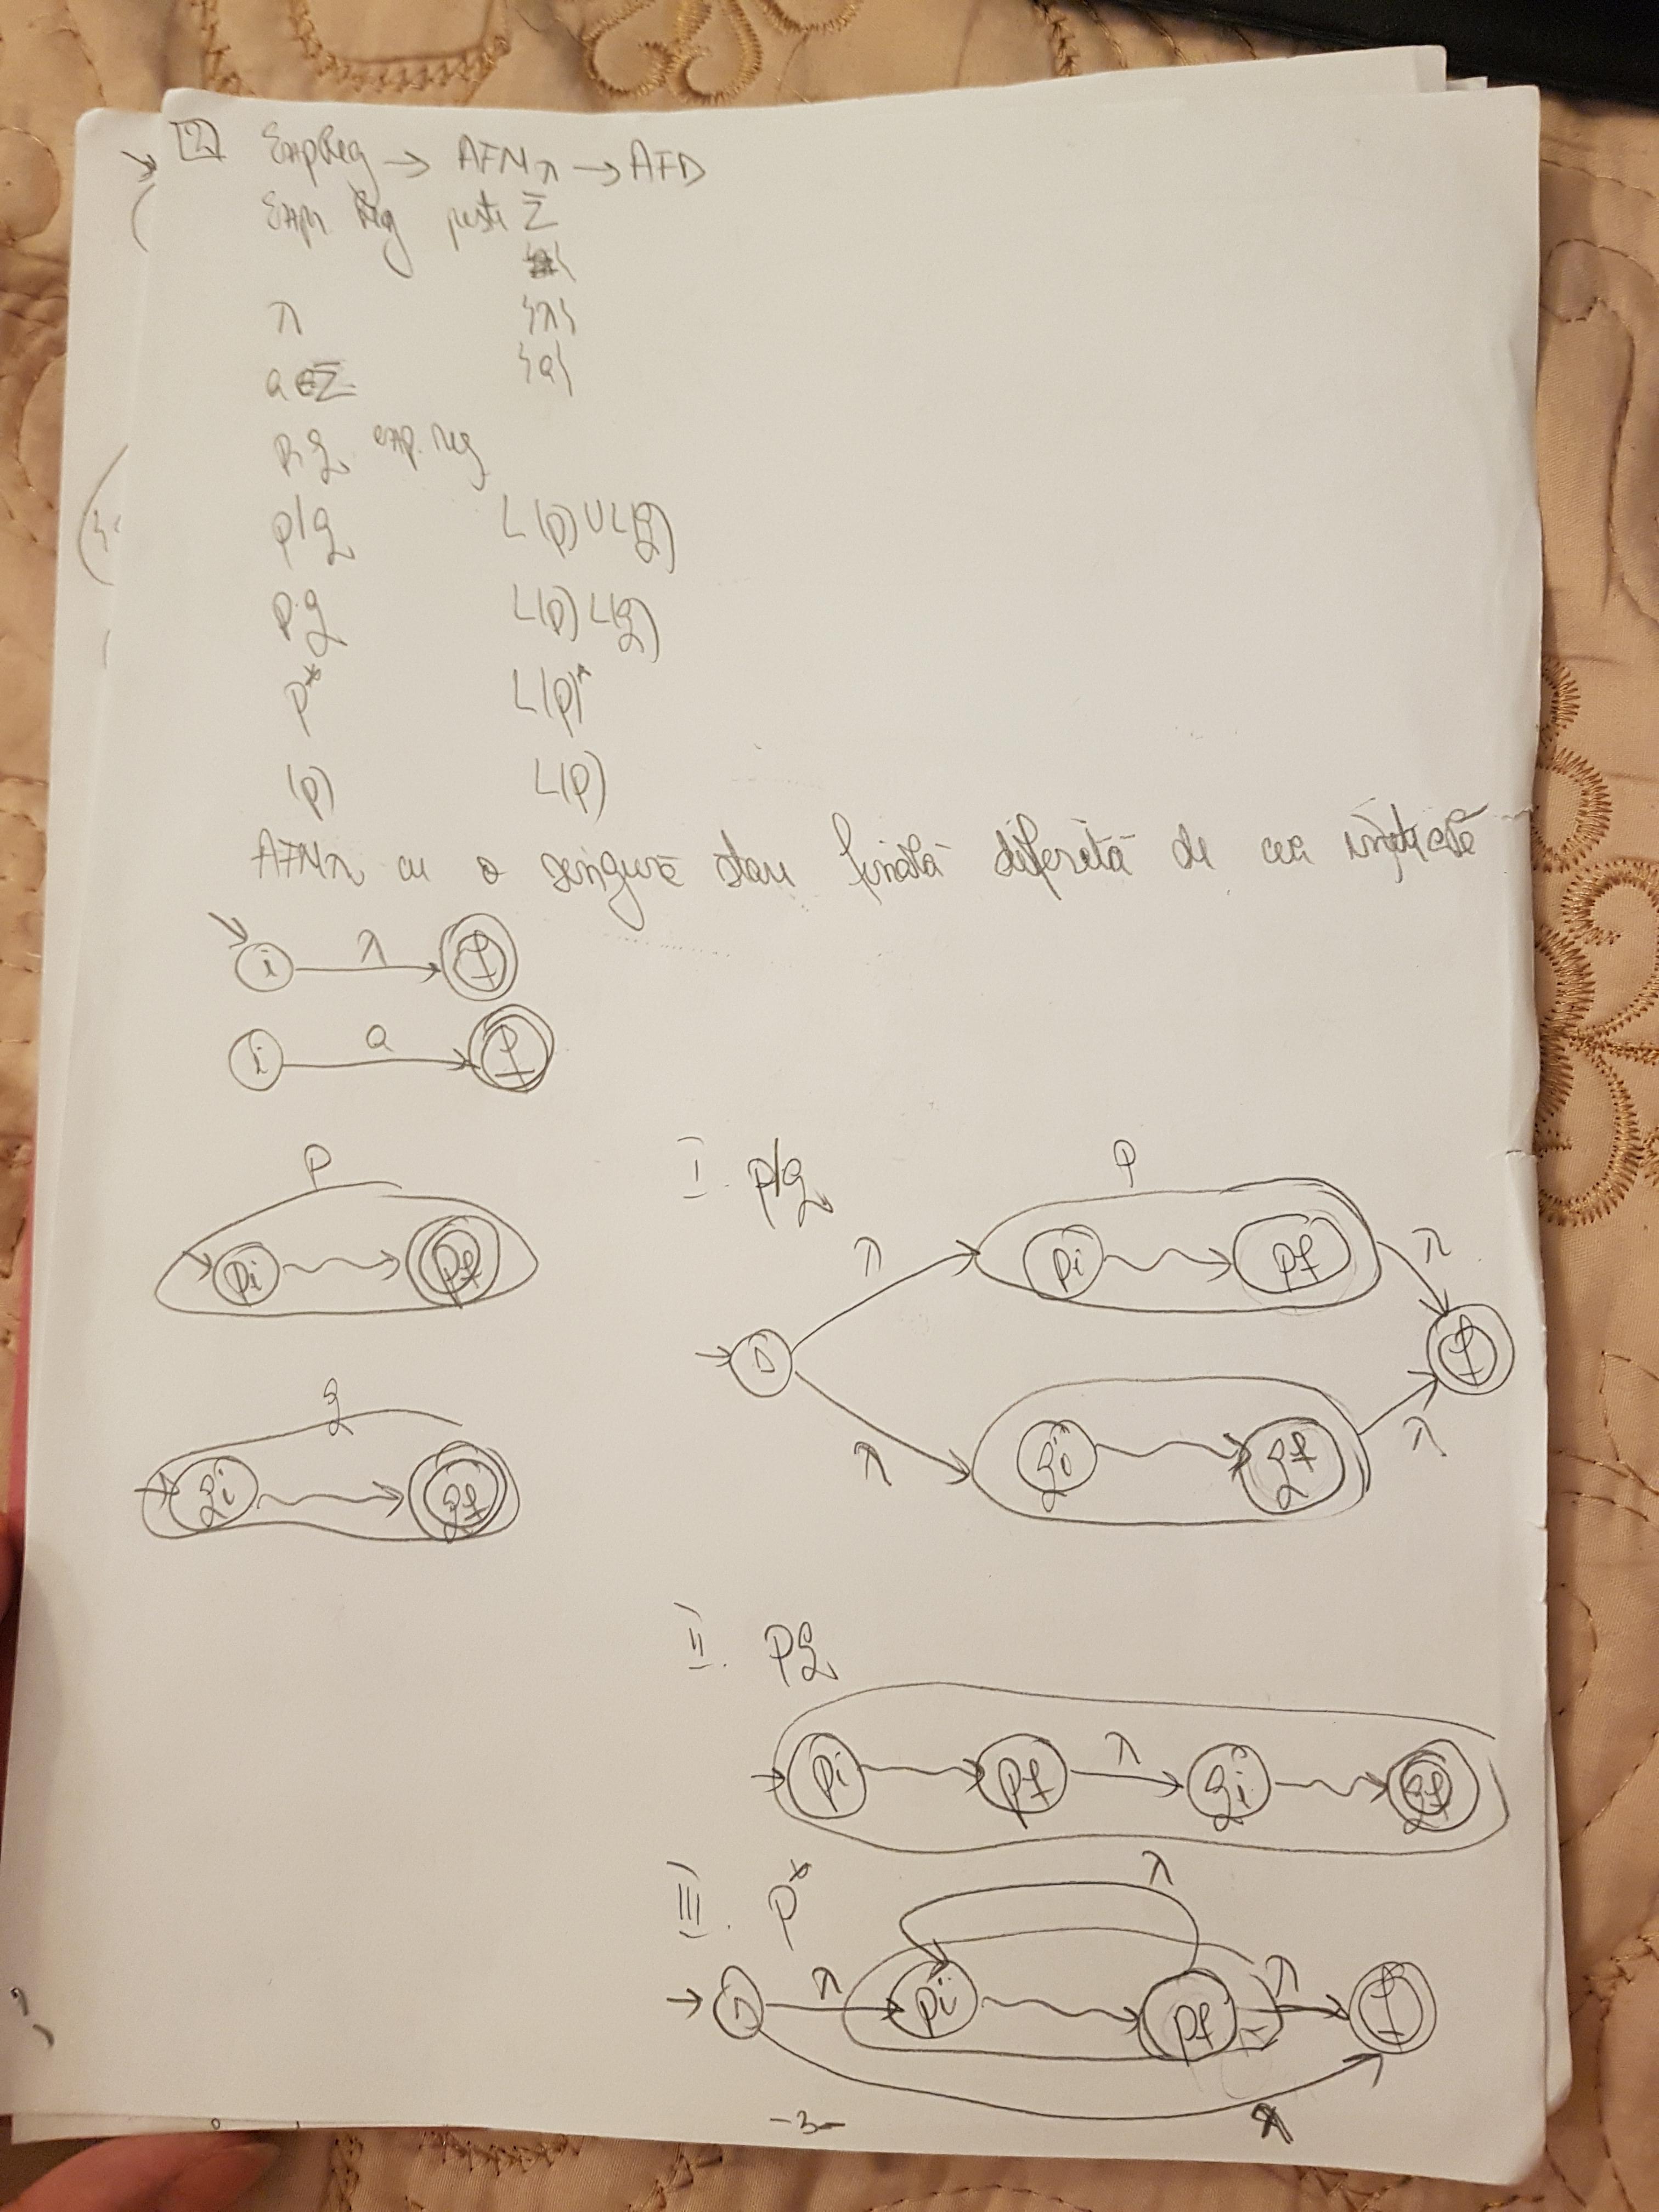 2 ExpReg → AFNλ → AFD
Expr Reg peste Σ
λ {λ}
a∈Σ {a}
p,q exp. reg
p|q L(p)∪L(q)
pq L(p)L(q)
p* L(p)*
(p) L(p)
AFNλ cu o singură stare finală diferită de cea
i λ f
i a f
p
pi pf
q
qi qf
I. p|q
p
λ pi pf λ
f
λ qi qf λ
II. pq
pi pf λ qi qf
III. p*
λ
λ pi pf λ f
λ
-3-